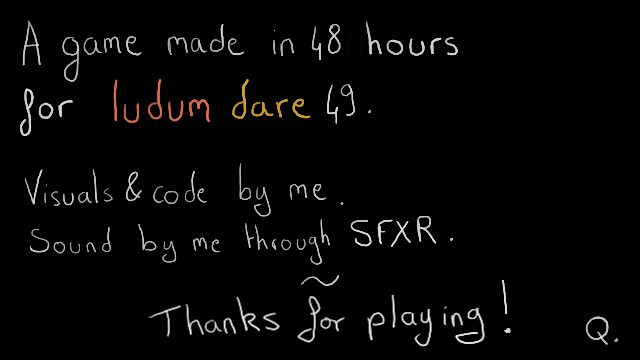 A game made in 48 hours
for ludum dare 49.
Visuals & code by me.
Sound by me through SFXR.
~
Thanks for playing!
Q.